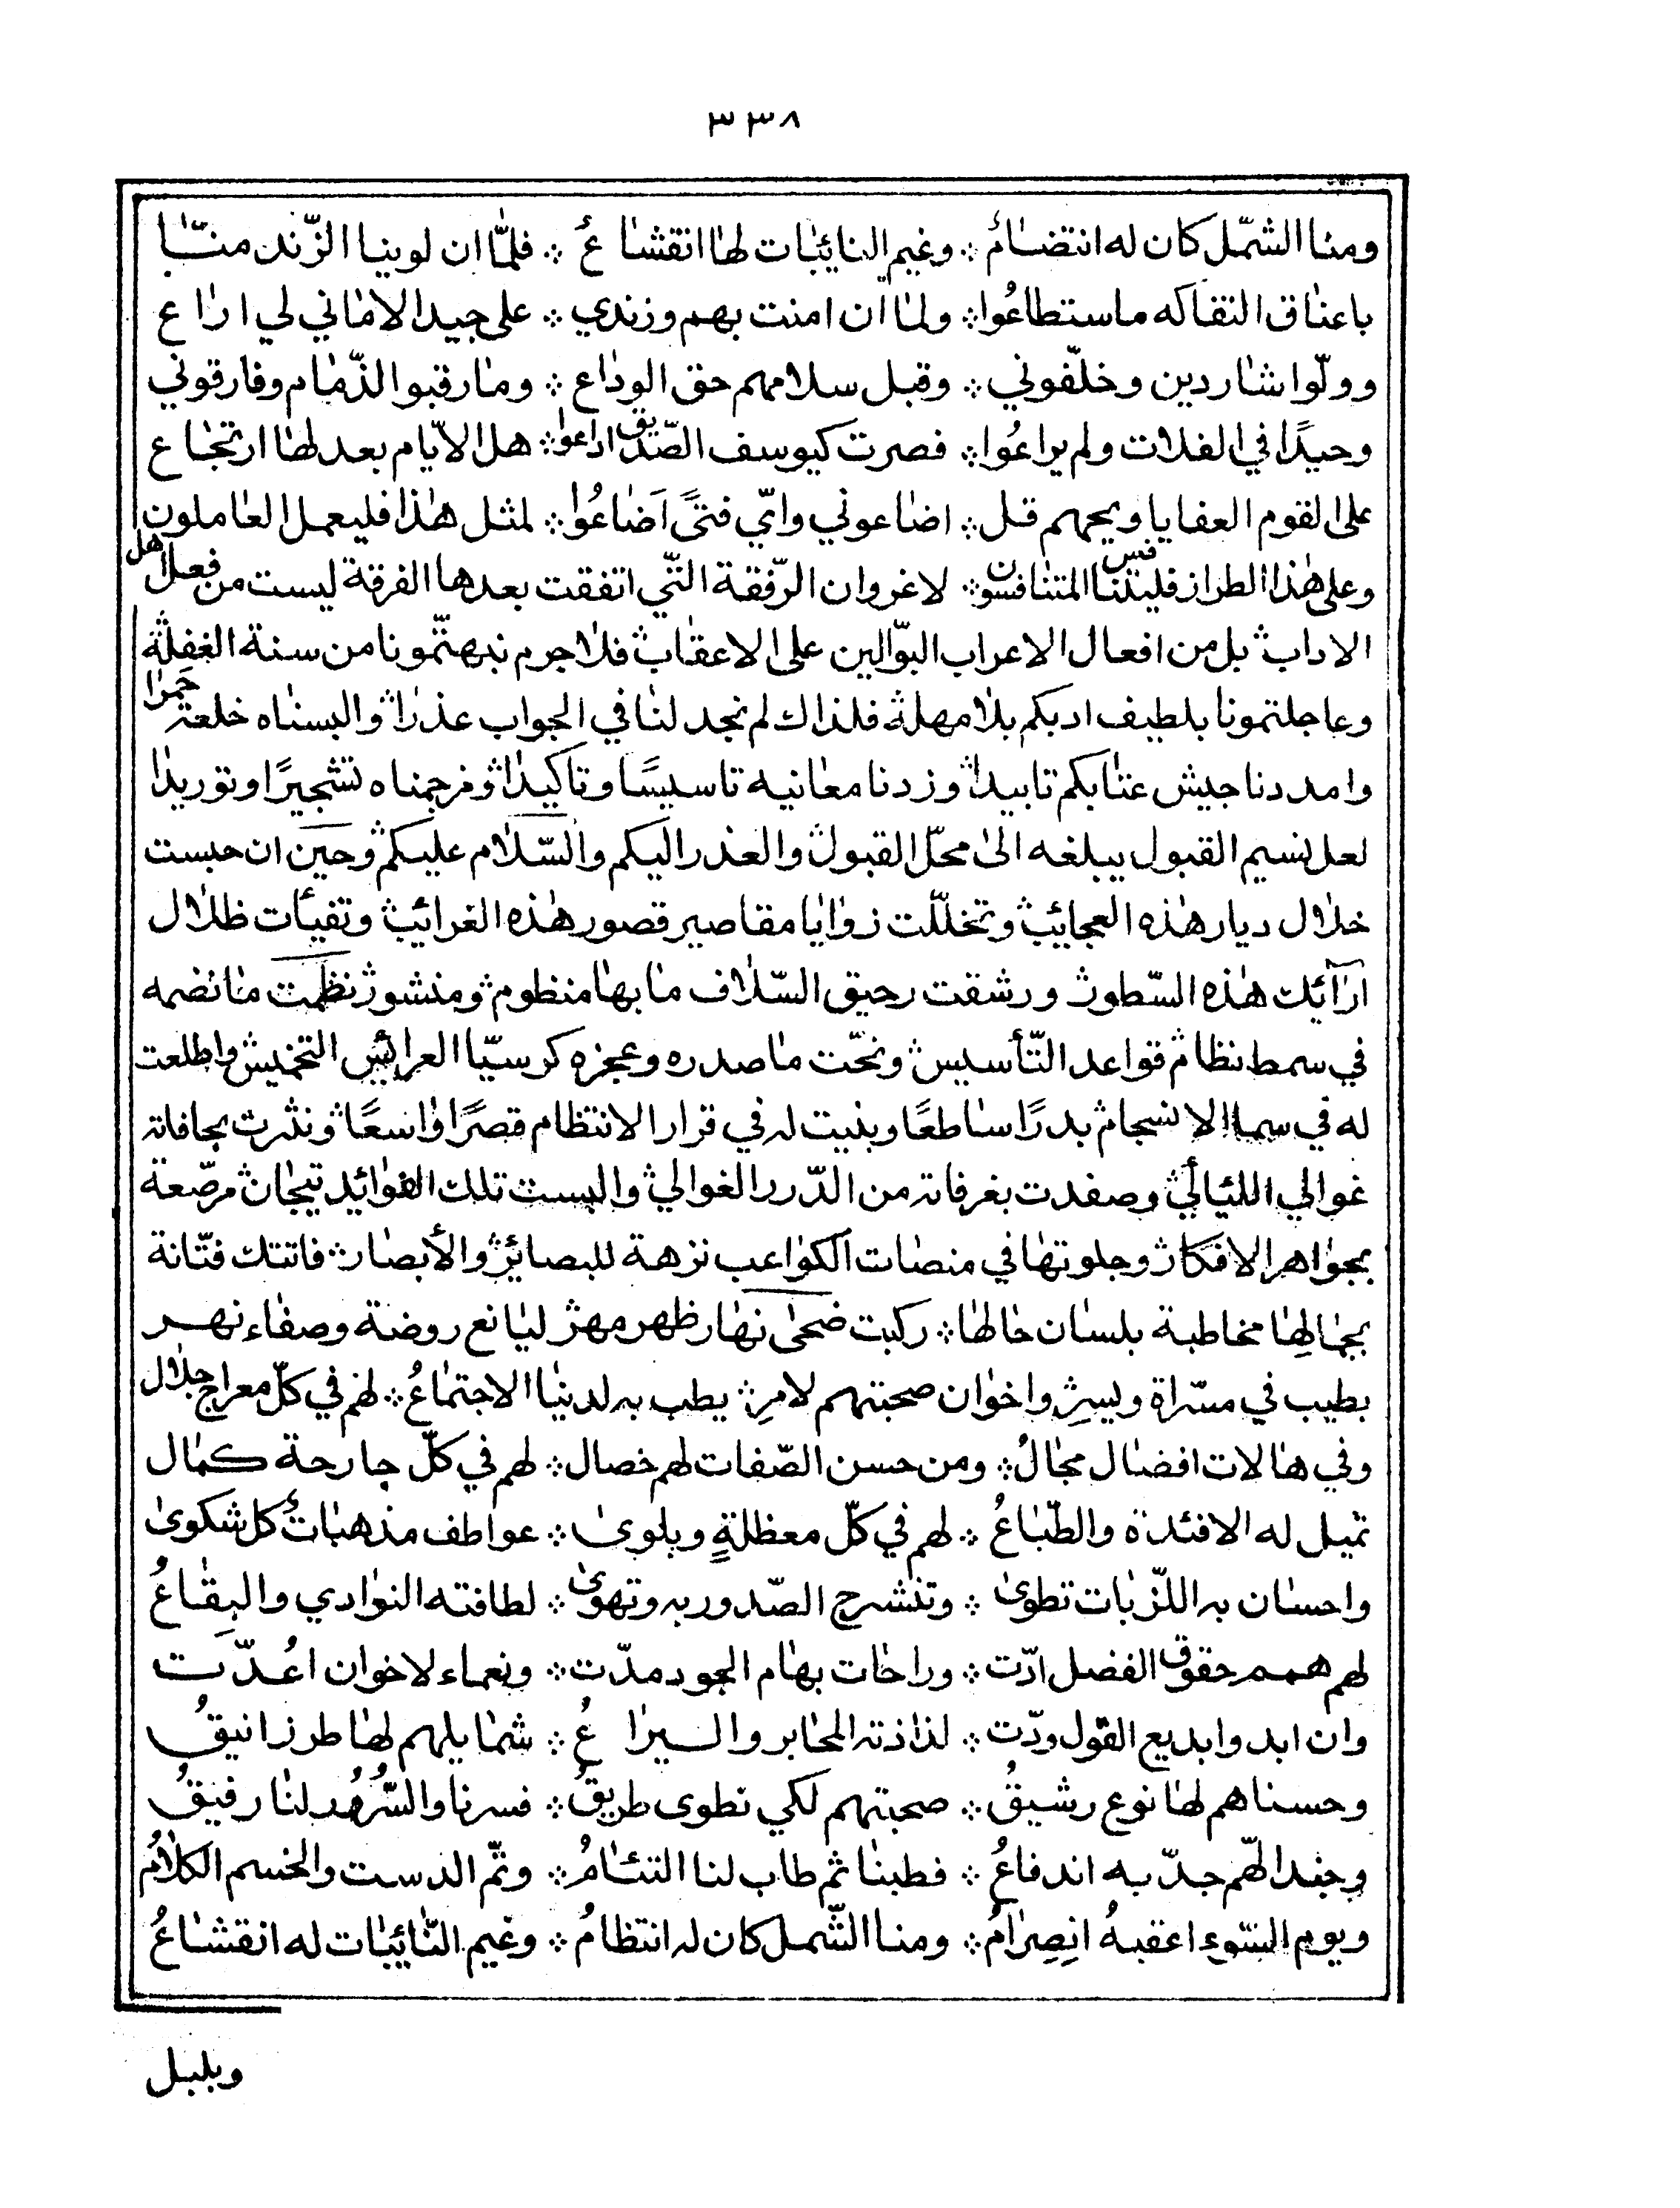 ٣٣٨
ومنا الشّمل كان له انتضاءُ ⁘ وغيم النايئبات لها انقشاعُ ⁘ فلمّا ان لوينا الزّند منّا
باعناق النقا كه ماستطاعُوا ⁘ ولما ان امنت بهم وزندي ⁘ على جيد الاماني لي اراع
وولّوا شاردين وخلّفوني ⁘ وقبل سلامهم حق الوداع ⁘ وما رقبوا الذّمام وفارقوني
وحيدًا في الفلات ولم يراعُوا ⁘ فصرت كيوسف الصّدّيق اذاعوا ⁘ هل الايّام بعد لها ارتجاع
على القوم العفايا ويحهم قل ⁘ اضاعوني وايّ فتىً اَضاعُوا ⁘ لمثل هٰذا فليعمل العاملون
وعلى هٰذا الطراز فليتنافس المتنافسون ⁘ لا غرو ان الرّفقة التّي اتفقت بعدها الفرقة ليست من فعل اهل
الاداب بل من افعال الاعراب البوّالين على الاعقاب فلا جرم نبهتّمونا من سنة الغفلة
وعاجلتمونا بلطيف ادبكم بلا مهلة فلذاك لم نجد لنا في الجواب عذرا والبسناه خلعة حمرا
وامددنا جيش عتابكم تابيدا وزدنا معانيه تاسيسًا وتاكيدا ومزجناه تشجيرًا وتوريدا
لعل نسيم القبول يبلغه الىٰ محلّ القبول والعذر اليكم والسّلام عليكم وحين ان حبست
خلال ديار هٰذه العجايئب وتخللّت زوايا مقاصير قصور هٰذه الغرائيب وتفيئات ظلال
ارآئك هٰذه السّطور ورشقت رحيق السّلاف ما بها منظوم ومنشور نظمت ما نضمه
في سمط نظام قواعد التّأسيس ونحّت ما صدره وعجزه كرسيّا العرايئس التخميش واطلعت
له في سماا الانسجام بدرًا ساطعًا وبنيت له في قرار الانتظام قصرًا واسعًا ونثرت بحافاته
غوالي اللئالي وصفدت بغرفاته من الدّرر الغوالي والبست تلك الفوائد تيجان مرصّعة
بجواهر الافكار وجلوتها في منصات الكواعب نزهة للبصايئر والأبصار فاتتك فتّانة
بجمالِها مخاطبة بلسان حالها ⁘ ركبت ضحىٰ نهار ظهر مهر ليانع روضة وصفاء نهر
بطيب في مسّراة ويسرِ واخوان صحبتهم لامرِ يطب به لدينا الاجتماعُ ⁘ لهم في كلّ معراج جلال
وفي هالات افضال مجالُ ⁘ ومن حسن الصّفات لهم خصال ⁘ لهم في كلّ جارحة كمال
تميل له الافئدة والطّباعُ ⁘ لهم في كلّ معظلةٍ وبلوىٰ ⁘ عواطف مذهباتُ كل شكوىٰ
واحسان به اللّزبات تطوىٰ ⁘ وتنشرح الصّدور به وتهوىٰ ⁘ لطافته النوادي والبِقاعُ
لهم همم حقوق الفضل ادّت ⁘ وراحات بهام الجود مدّت ⁘ ونعماء لاخوان اعُدّت
وان ابدوا بديع القول ودّت ⁘ لذاذته المحابر واليراعُ ⁘ شمايلهم لها طرز انيقُ
وحسناهم لها نوع رشيقُ ⁘ صحبتهم لكي نطوى طريقُ ⁘ فسرنا والسُّرُور لنا رفيقُ
وجند الهّم جدّ به اندفاعُ ⁘ فطبنا ثم طاب لنا التئامُ ⁘ وتّم الدست والخسم الكلامُ
ويوم السّوء اعقبهُ انصِرامُ ⁘ ومنا الشّمل كان له انتظامُ ⁘ وغيم النّائبات له انقشاعُ
وبلبل